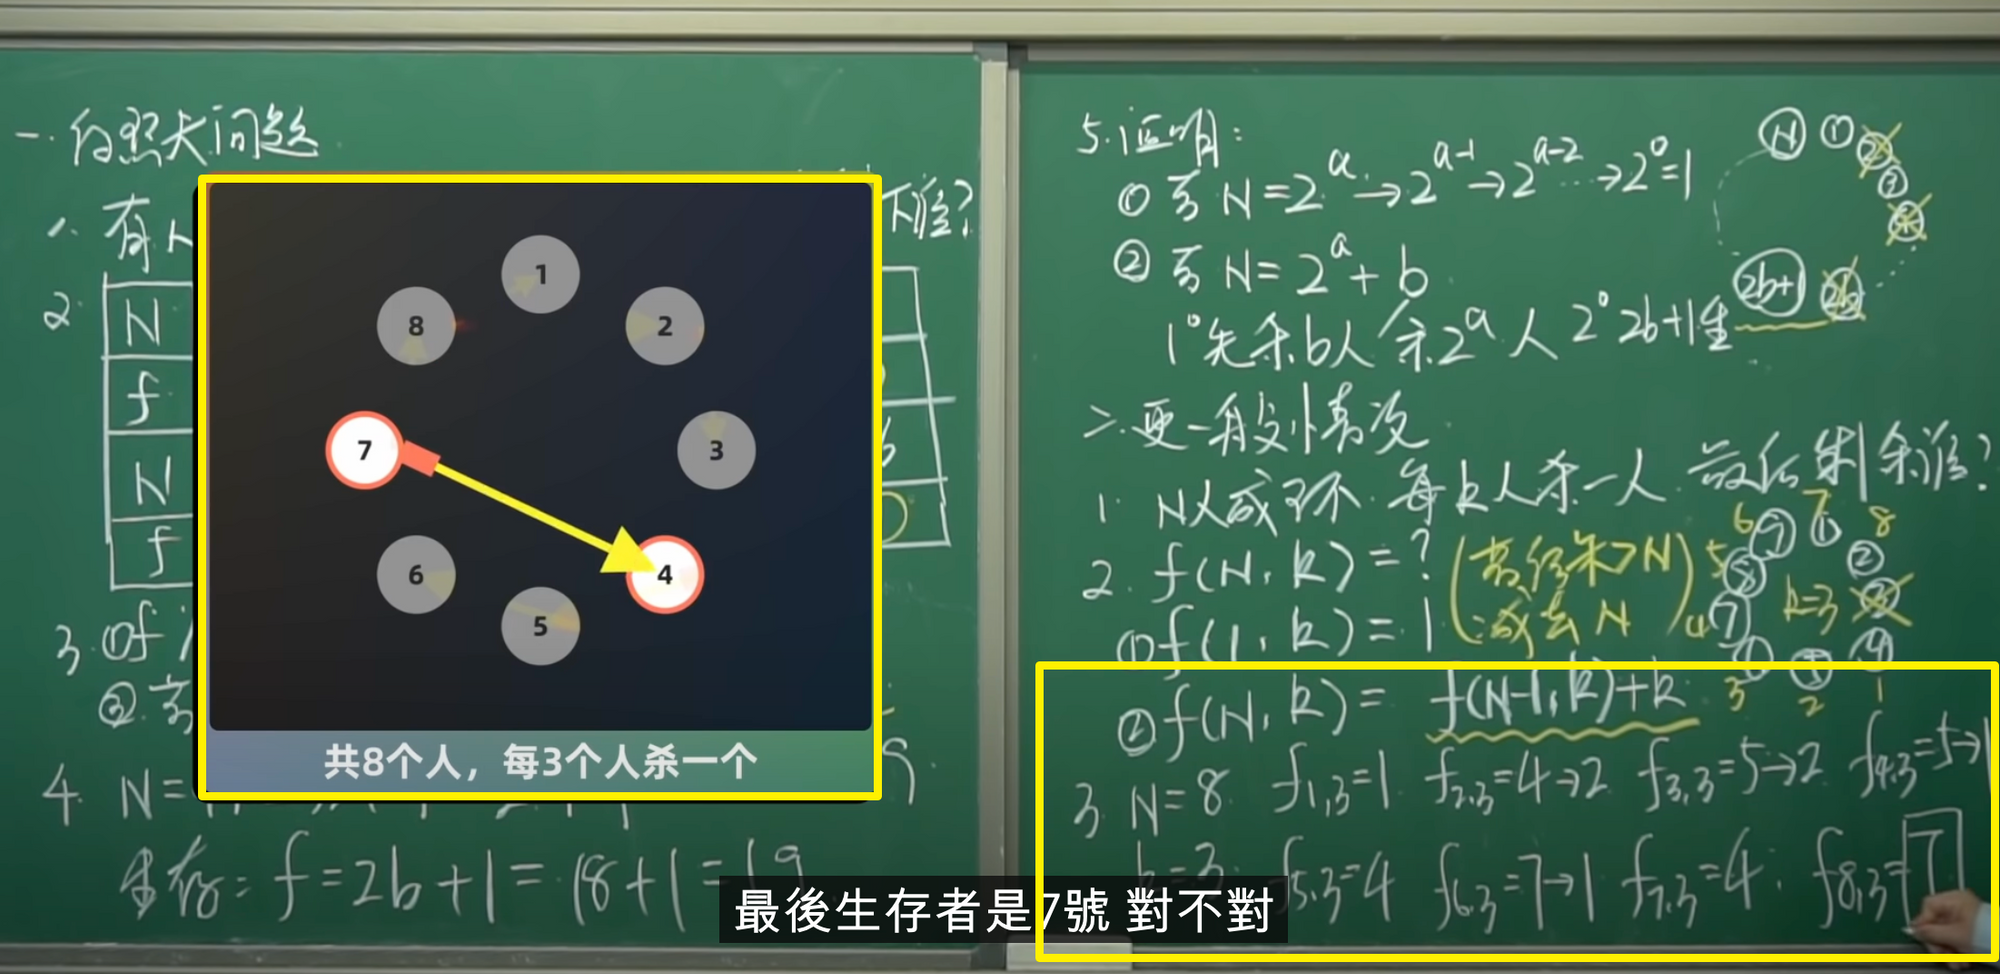 一.约瑟夫问题
1.有人
2.
N
f
N
f
3.①f
②若
4. N=
生存: f=2b+1=18+1=19
1
2
3
4
5
6
7
8
共8个人，每3个人杀一个
5.证明:
①若 N=2^a→2^(a-1)→2^(a-2)…→2^0=1
②若 N=2^a+b
1°先杀b人余2^a人 2°2b+1生
N ① ② ③ ④
2b+1 2b
二.更一般情况
1. N人成环.每k人杀一人.最后剩余谁?
2. f(N,k)=?
①f(1,k)=1
②f(N,k)= f(N-1,k)+k
k=3
3. N=8 f1,3=1 f2,3=4→2 f3,3=5→2 f4,3=5→1
k=3. f5,3=4 f6,3=7→1 f7,3=4. f8,3=7
最後生存者是7號 對不對